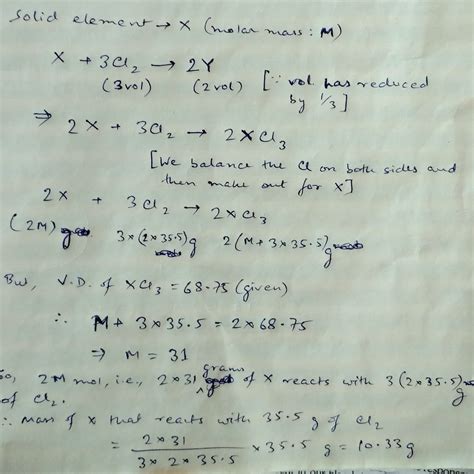 Solid element → X (molar mass : M)
X + 3Cl2 → 2Y
(3vol) (2vol) [∵ vol. has reduced
by 1/3]
⇒ 2X + 3Cl2 → 2XCl3
[We balance the Cl on both sides and
then make out for X]
2X + 3Cl2 → 2XCl3
(2M) g 3×(2×35.5)g 2(M+3×35.5)g
But, V.D. of XCl3 = 68.75 (given)
∴ M+ 3×35.5 = 2×68.75
⇒ M = 31
So, 2M mol, i.e., 2×31 grams of X reacts with 3(2×35.5)g
of Cl2.
∴ Mass of X that reacts with 35.5 g of Cl2
= 2×31 / 3×2×35.5 × 35.5 g = 10.33g